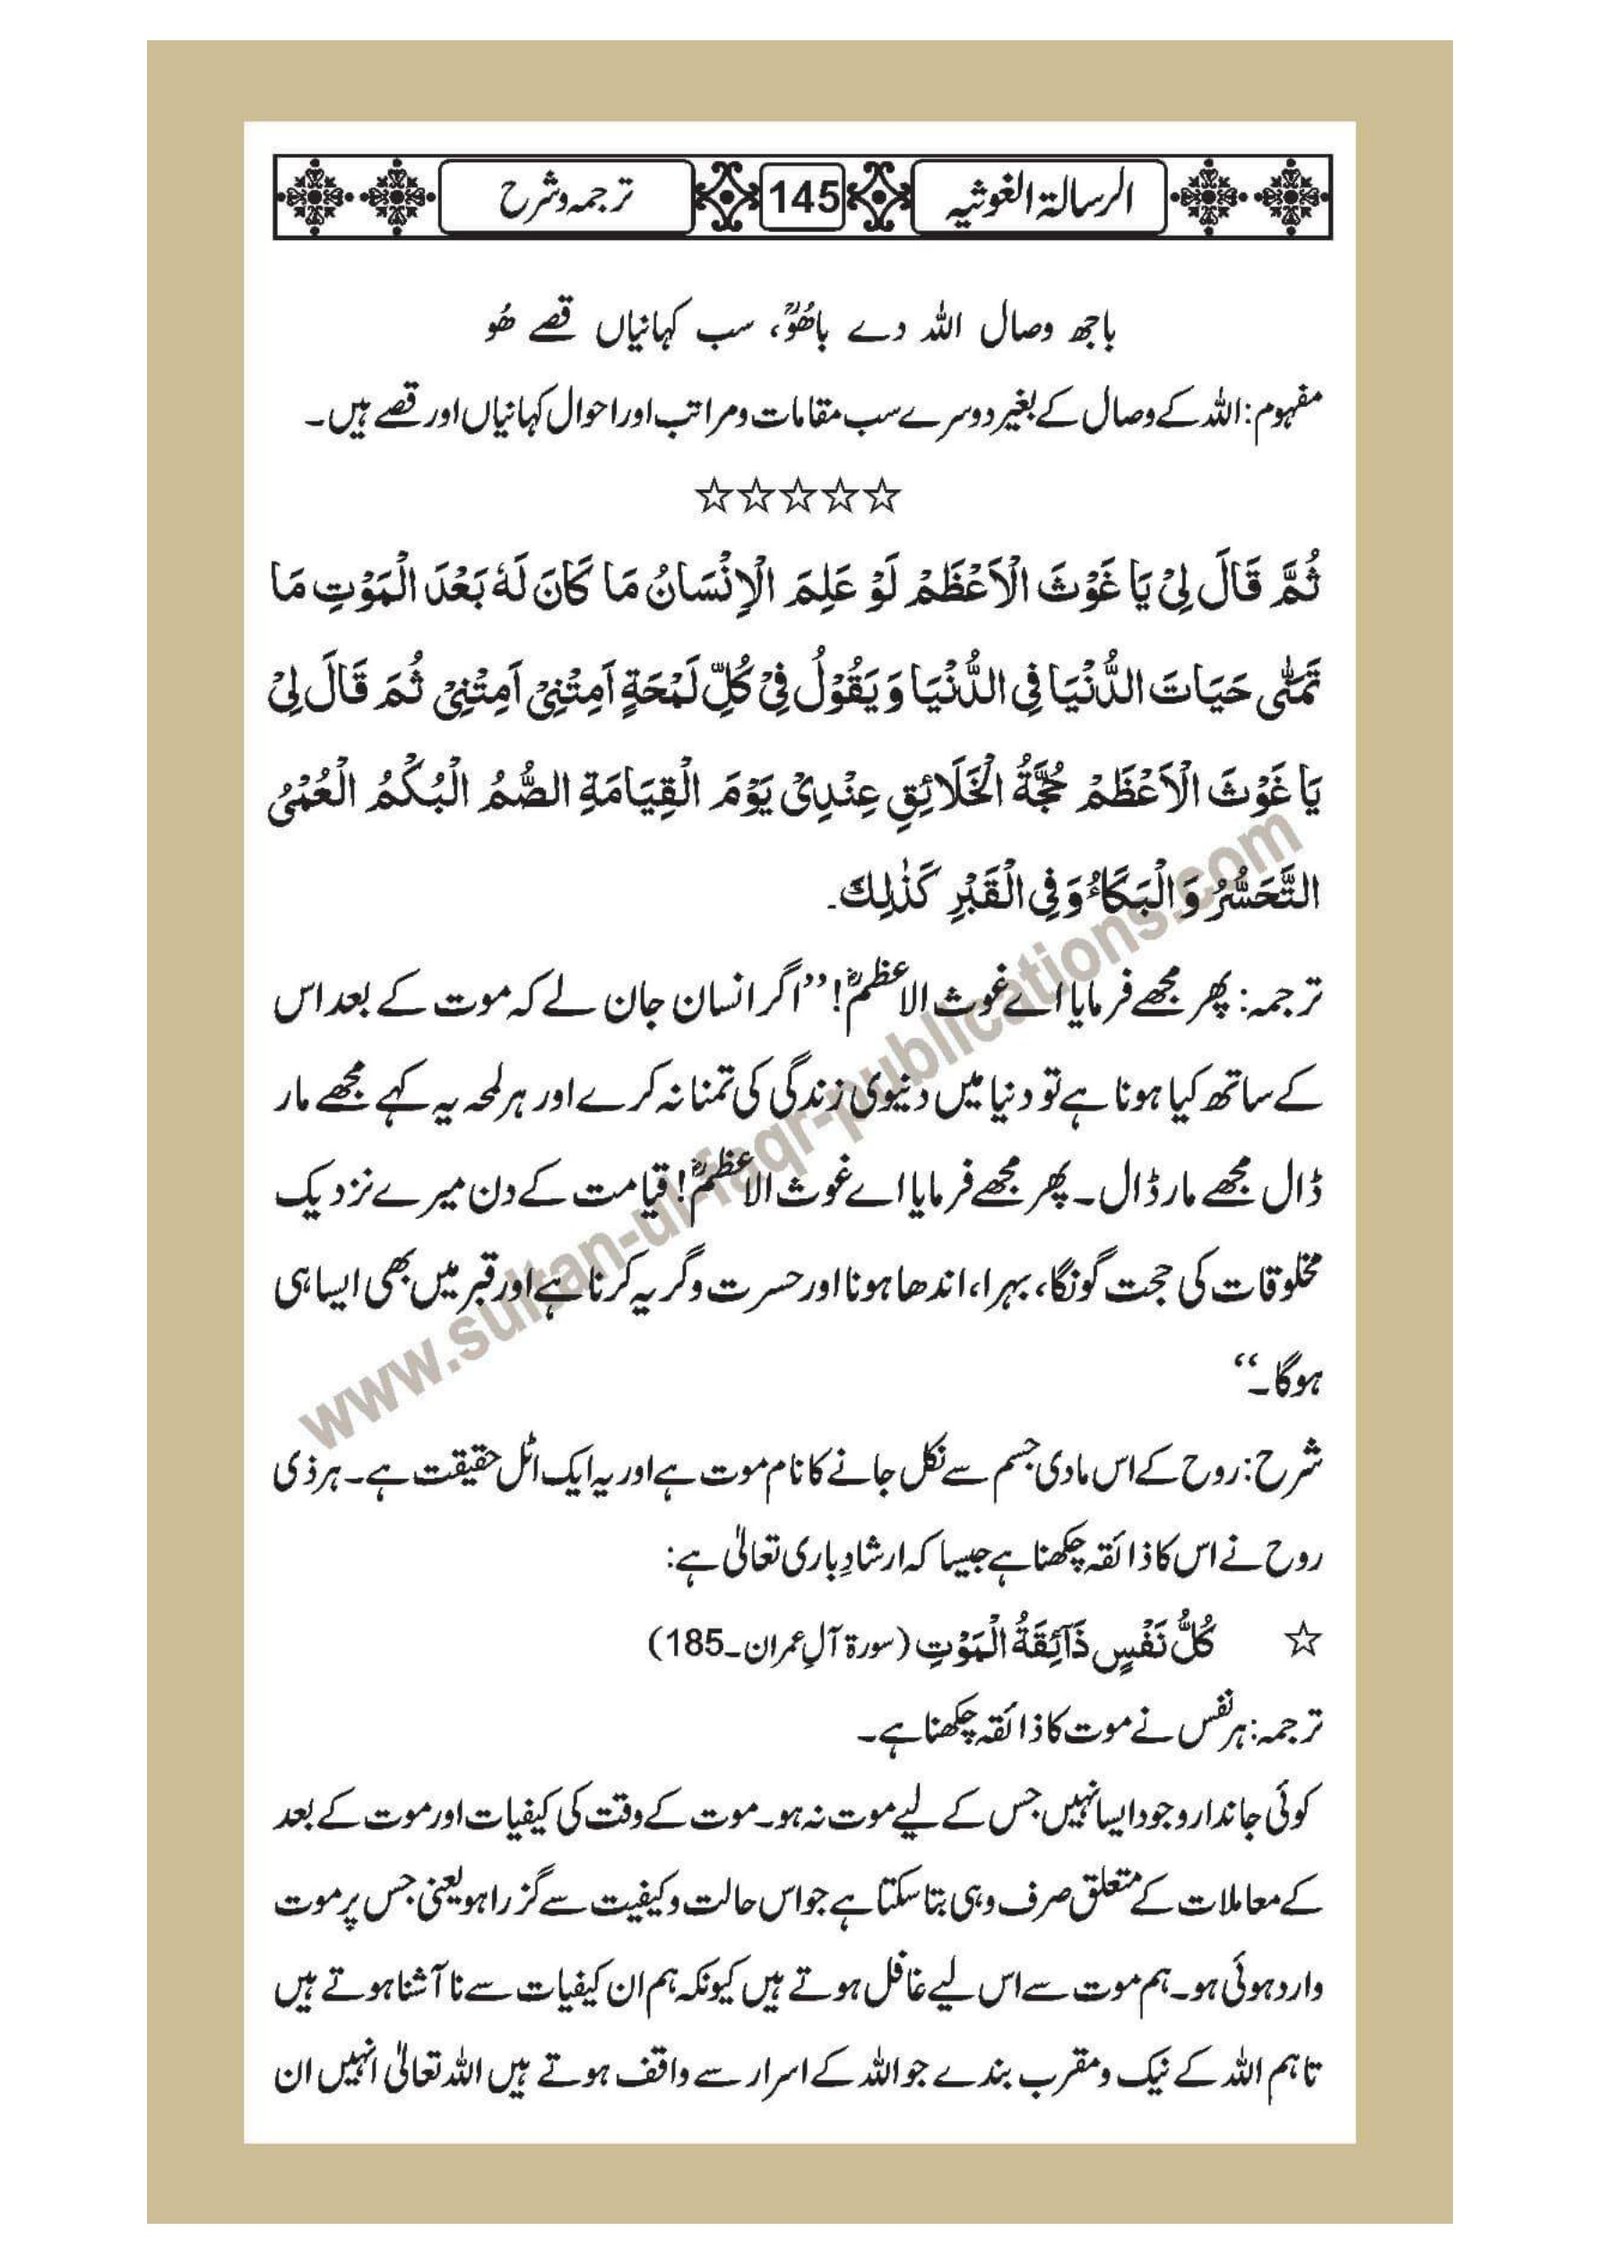 الرسالۃ الغوثیہ 145 ترجمہ و شرح
باجھ وصال اللہ دے باھُوؒ، سب کہانیاں قصے ھُو
مفہوم: اللہ کے وصال کے بغیر دوسرے سب مقامات و مراتب اور احوال کہانیاں اور قصے ہیں۔
☆☆☆☆☆
ثُمَّ قَالَ لِیْ یَا غَوْثَ الْاَعْظَمْ لَوْ عَلِمَ الْاِنْسَانُ مَا کَانَ لَہٗ بَعْدَ الْمَوْتِ مَا
تَمَنّٰی حَیَاتَ الدُّنْیَا فِی الدُّنْیَا وَ یَقُوْلُ فِیْ کُلِّ لَمْحَۃٍ اَمِتْنِیْ اَمِتْنِیْ ثُمَ قَالَ لِیْ
یَا غَوْثَ الْاَعْظَمْ حُجَّۃُ الْخَلَائِقِ عِنْدِیْ یَوْمَ الْقِیَامَۃِ الصُّمُ الْبُکْمُ الْعُمْیُ
التَّحَسُّرُ وَ الْبَکَاءُ وَ فِی الْقَبْرِ کَذٰلِکَ۔
ترجمہ: پھر مجھے فرمایا اے غوث الاعظمؓ! ’’اگر انسان جان لے کہ موت کے بعد اس
کے ساتھ کیا ہونا ہے تو دنیا میں دنیوی زندگی کی تمنا نہ کرے اور ہر لمحہ یہ کہے مجھے مار
ڈال مجھے مار ڈال۔ پھر مجھے فرمایا اے غوث الاعظمؓ! قیامت کے دن میرے نزدیک
مخلوقات کی حجت گونگا، بہرا، اندھا ہونا اور حسرت و گریہ کرنا ہے اور قبر میں بھی ایسا ہی
ہوگا۔‘‘
شرح: روح کے اس مادی جسم سے نکل جانے کا نام موت ہے اور یہ ایک اٹل حقیقت ہے۔ ہر ذی
روح نے اس کا ذائقہ چکھنا ہے جیسا کہ ارشادِ باری تعالیٰ ہے:
☆ کُلُّ نَفْسٍ ذَآئِقَۃُ الْمَوْتِ (سورۃ آلِ عمران۔185)
ترجمہ: ہر نفس نے موت کا ذائقہ چکھنا ہے۔
کوئی جاندار وجود ایسا نہیں جس کے لیے موت نہ ہو۔ موت کے وقت کی کیفیات اور موت کے بعد
کے معاملات کے متعلق صرف وہی بتا سکتا ہے جو اس حالت و کیفیت سے گزرا ہو یعنی جس پر موت
وارد ہوئی ہو۔ ہم موت سے اس لیے غافل ہوتے ہیں کیونکہ ہم ان کیفیات سے نا آشنا ہوتے ہیں
تاہم اللہ کے نیک و مقرب بندے جو اللہ کے اسرار سے واقف ہوتے ہیں اللہ تعالیٰ انہیں ان
www.sultan-ul-faqr-publications.com